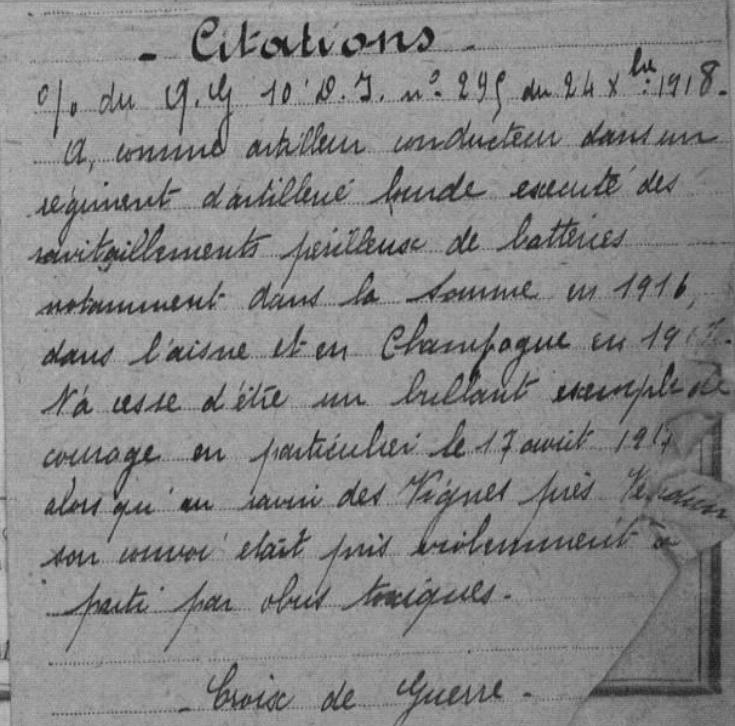 - Citations -
o/o du Q.G 10e D.I. n° 295 du 24 Xbre 1918.
A, comme artilleur conducteur dans un
régiment d'artillerie lourde executé des
ravitaillements périlleux de batteries
notamment dans la Somme en 1916,
dans l'aisne et en Champagne en 1917.
N'a cesse d'être un brillant exemple de
courage en particulier le 17 aout 1917
alors qu'au ravin des Vignes près Verdun
son convoi etait pris violemment à
parti par obus toxiques.
- Croix de Guerre -